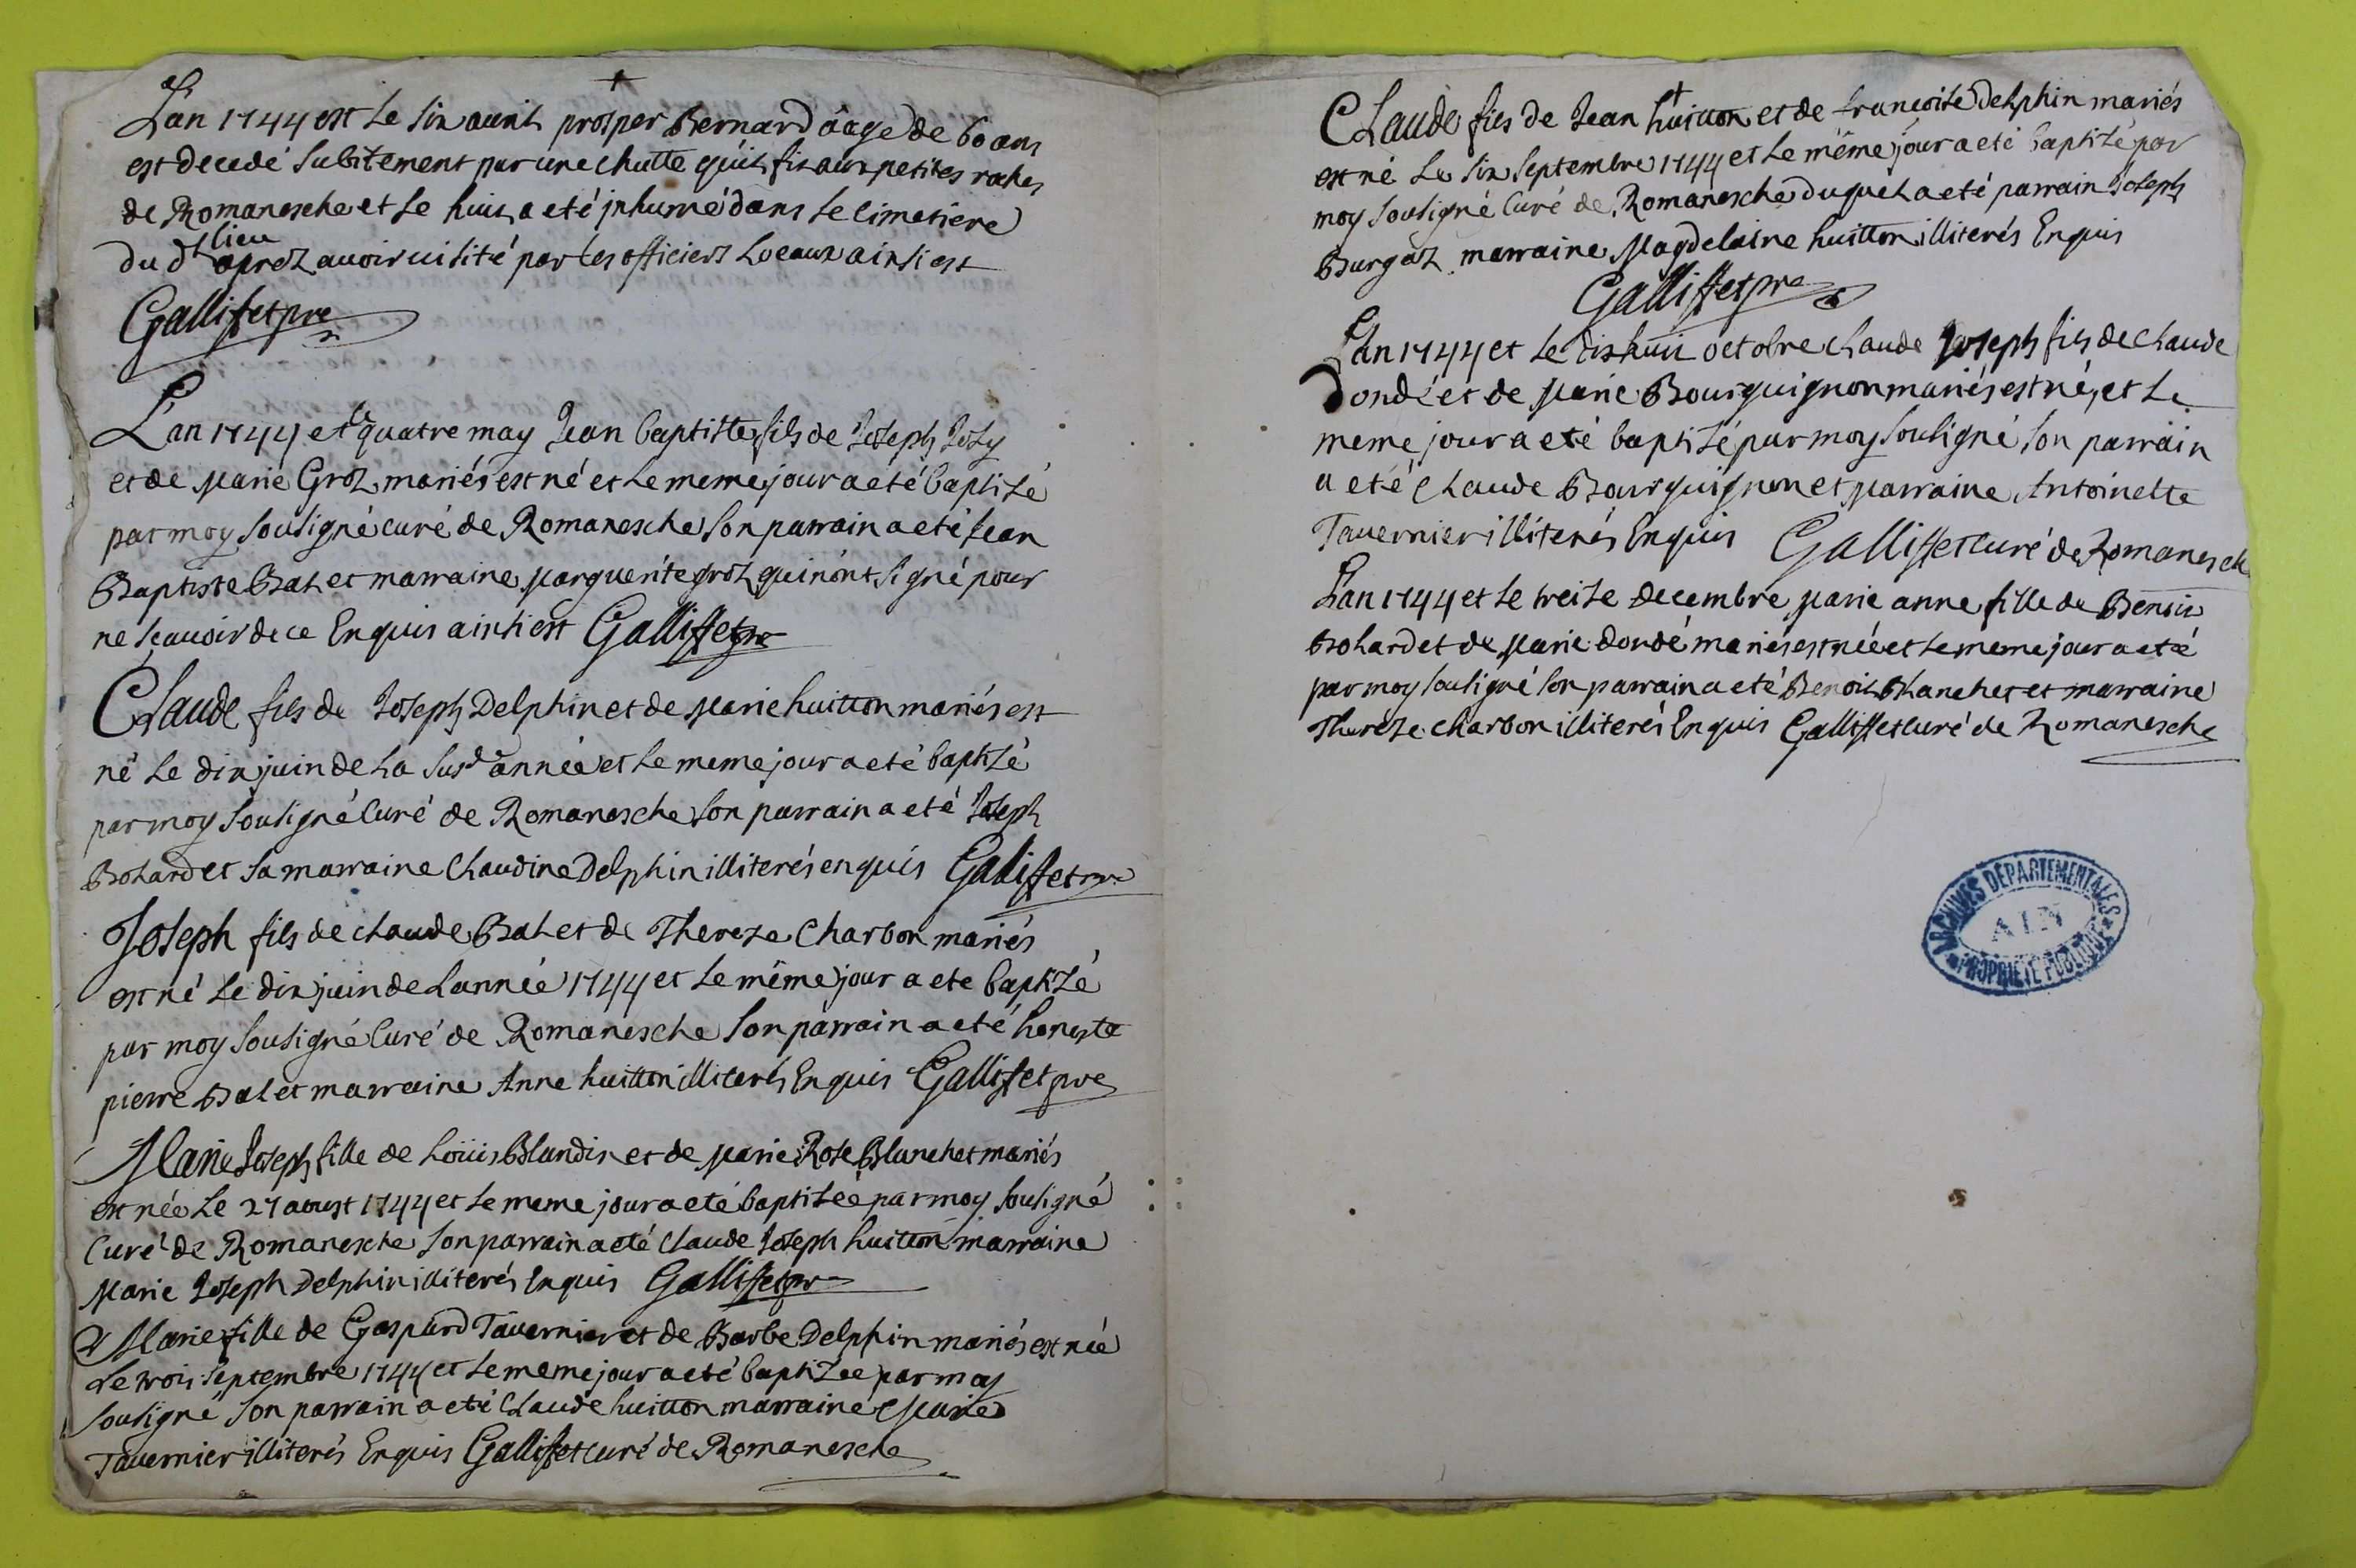 L'an 1744 est le six avril prosper Bernard âage de 60 ans
est decedé subitement par une chutte qu'il fit aux petites roches
de Romanesche et le huit a eté jnhumé dans le cimetiere
du dt lieu aprez avoir visité par les officiers Locaux ainsi est
Galliffet pre
L'an 1744 et le quatre may Jean baptiste fils de Joseph Josy
et de Marie Groz mariés est né et le meme jour a eté baptizé
par moy sousigné curé de Romanesche son parrain a eté Jean
Baptiste Bal et marraine Marguerite groz qui n'ont signé pour
ne sçavoir de ce Enquis ainsi est Galliffet pre
Claude fils de Joseph Delphin et de Marie huitton mariés est
né Le dix juin de La susd année et Le meme jour a eté baptizé
par moy sousigné Curé de Romanesche son parrain a eté Joseph
Bohard et sa marraine Claudine Delphin illiterés enquis Galliffet pre
Joseph fils de claude Bal et de Thereze Charbon mariés
est né Le dix juin de L'année 1744 et Le même jour a ete baptizé
par moy sousigné Curé de Romanesche son parrain a eté honeste
pierre Bal et marraine Anne huitton illiterés Enquis Galliffet pre
Marie Joseph fille de Loüis Blandin et de Marie Rose Blanchet mariés
est née Le 27 aoust 1744 et Le meme jour a eté baptisée par moy sousigné
Curé de Romanesche son parrain a eté Claude Joseph huitton marraine
Marie Joseph Delphin illiterés Enquis Galliffet pre
Marie fille de Gaspard Tavernier et de Barbe Delphin mariés est née
Le trois septembre 1744 et Le meme jour a eté baptizée par moy
sousigné son parrain a eté Claude huitton marraine Marie
Tavernier illiterés Enquis Galliffet curé de Romanesche
Claude fils de Jean huitton et de francoise Delphin mariés
est né Le six septembre 1744 et Le même jour a eté baptizé par
moy sousigné Curé de Romanesche duquel a eté parrain Joseph
Burgaz marraine Magdelaine huitton illiterés Enquis
Galliffet pre
L'an 1744 et Le dixhuit octobre claude Joseph fils de claude
Dondé et de Marie Bourguignon mariés est né, et Le
meme jour a eté baptizé par moy sousigné son parrain
a eté Claude Bourguignon et marraine Antoinette
Tavernier illiterés Enquis Galliffet curé de Romanesche
L'an 1744 et Le treize decembre Marie anne fille de Benoit
Bohard et de Marie dondé mariés est née et Le meme jour a eté
par moy sousigné son parrain a eté Benoit Blanchet et marraine
Thereze charbon illiterés Enquis Galliffet curé de Romanesche
ARCHIVES DÉPARTEMENTALES
AIN
PROPRIÉTÉ PUBLIQUE